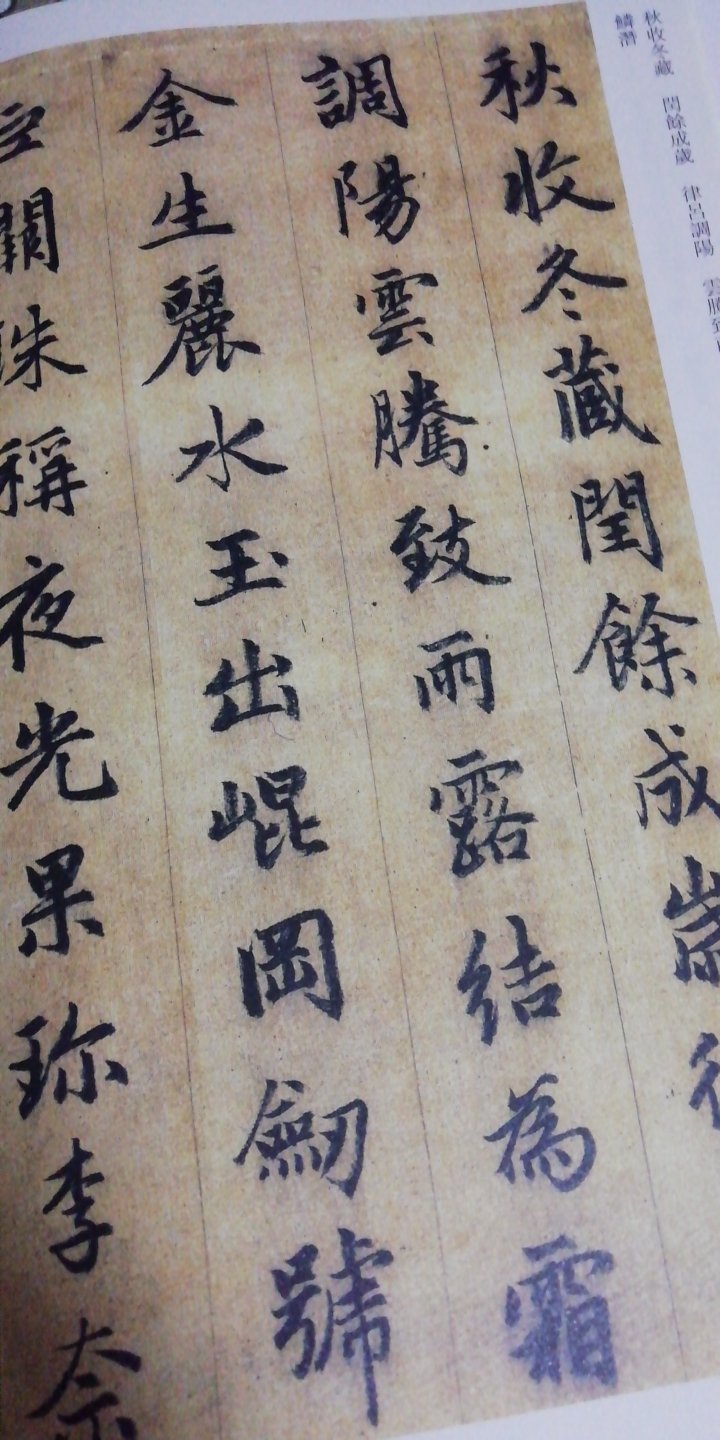 秋收冬藏 閏餘成歲 律呂調陽 雲騰
鱗潛
秋收冬藏閏餘成歲
調陽雲騰致雨露結為霜
金生麗水玉出崐岡劒號
巨闕珠稱夜光果珍李奈